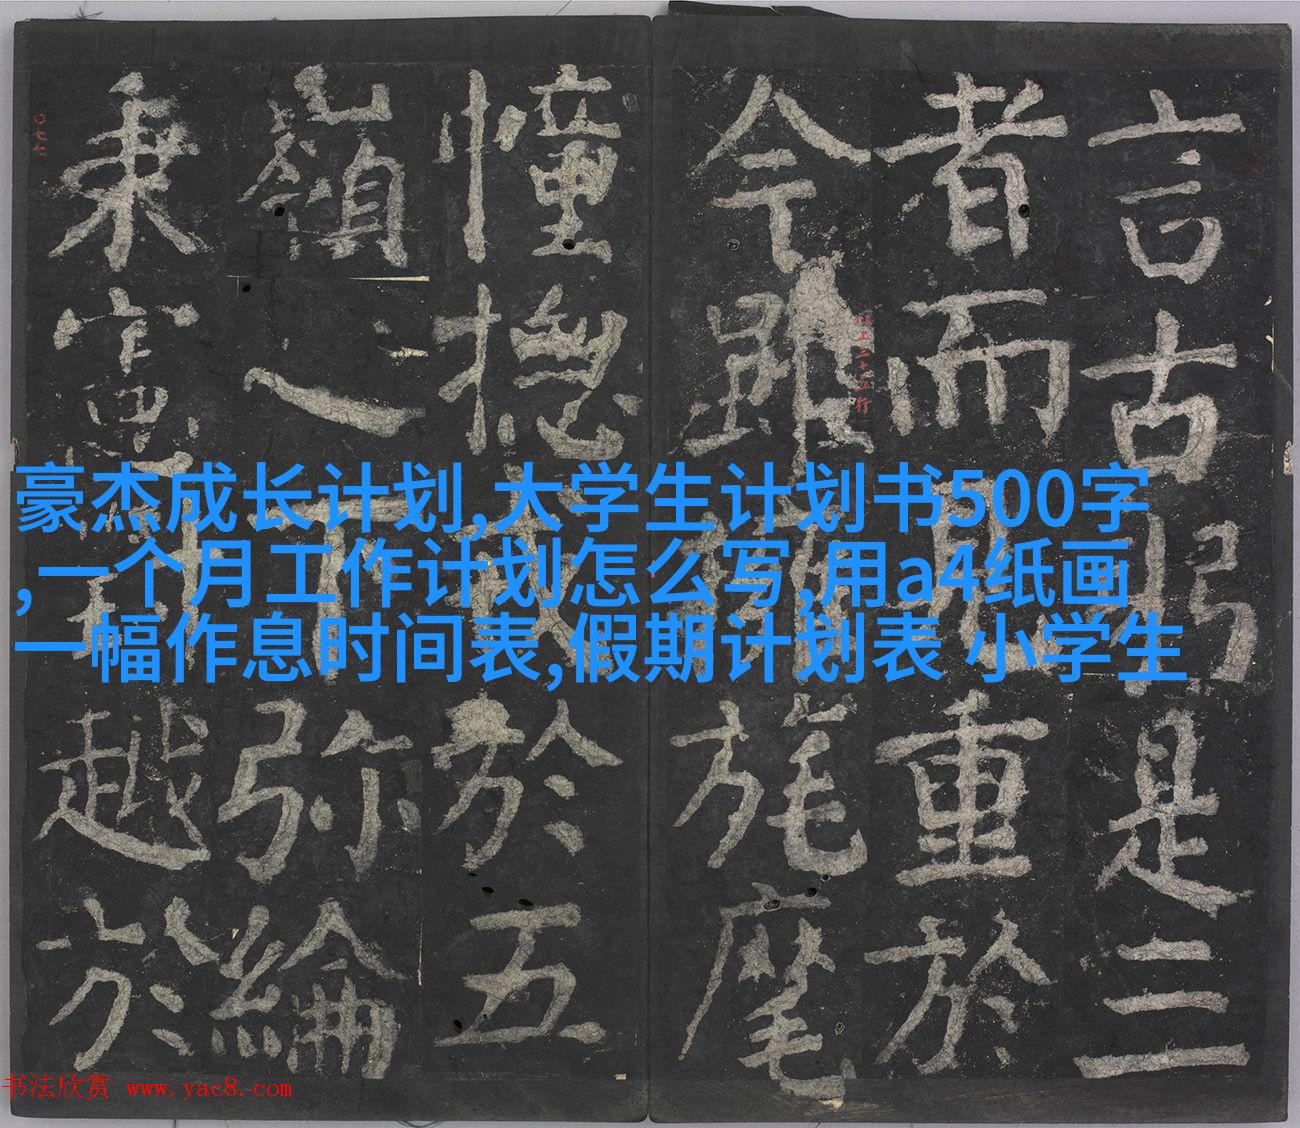 言古是三
者而重於
今雖旄麾
憧揔於五
嶺之弥綸
秉憲越於
豪杰成长计划,大学生计划书500字
,一个月工作计划怎么写,用a4纸画
一幅作息时间表,假期计划表 小学生
书法欣赏 www.yac8.com